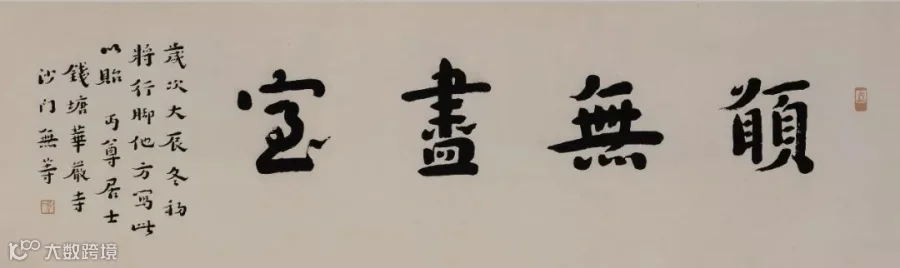 願無盡室
歲次大辰冬初
將行腳他方寫此
以貽 丏尊居士
錢塘華嚴寺
沙门無等
大数跨境